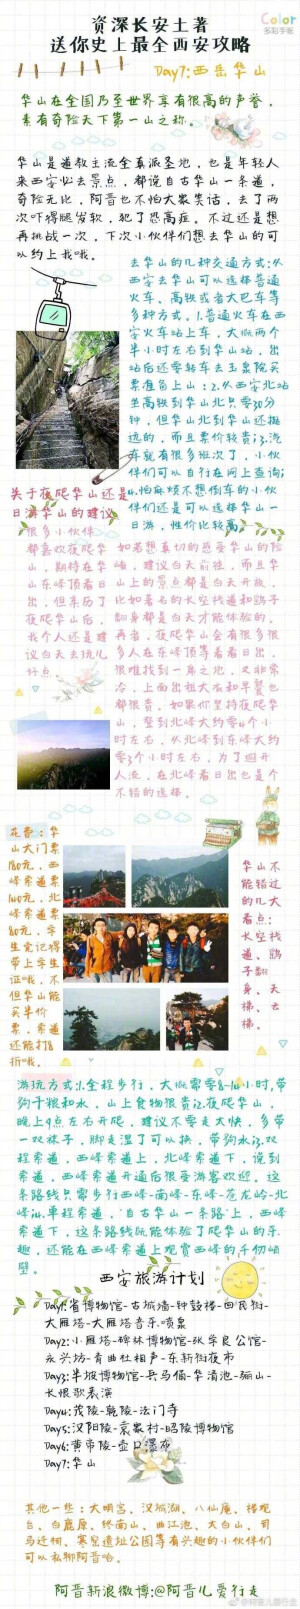 Color
多彩手帐
资深长安土著
送你史上最全西安攻略
Day7:西岳华山
华山在全国乃至世界享有很高的声誉,
素有奇险天下第一山之称。
华山是道教主流全真派圣地,也是年轻人
来西安必去景点,都说自古华山一条道,
奇险无比,阿音也不怕大家笑话,去了两
次吓得腿发软,犯了恐高症。不过还是想
再挑战一次,下次小伙伴们想去华山的可
以约上我哦。
去华山的几种交通方式:从
西安去华山可以选择普通
火车、高铁或者大巴车等
多种方式。1.普通火车在西
安火车站上车,大概两个
半小时左右到华山站,出
站后还要转车去玉泉院买
票准备上山;2.从西安北站
坐高铁到华山北只要30分
钟,但华山北到华山还挺
远的,而且票价较贵;3.汽
车就有很多班次了,小伙
伴们可以自行在网上查询;
4.怕麻烦不想倒车的小伙
伴们还是可以选择华山一
日游,性价比较高
关于夜爬华山还是
日游华山的建议
很多小伙伴
都喜欢夜爬华
山,期待在华
山东峰顶看日
出,但亲历了
夜爬华山后,
我个人还是建
议白天去玩儿
好点
如若想真切的感受华山的险
峻,建议白天前往,而且华
山上的景点都是白天开放,
比如著名的长空栈道和鹞子
翻身都是白天才能体验的。
再者,夜爬华山会有很多很
多人在东峰顶等着看日出,
很难找到一席之地,又非常
冷,上面出租大衣和早餐也
都很贵。如果你坚持夜爬华
山,登到北峰大约要4个小
时左右,从北峰到东峰大约
要3个小时左右,为了避开
人流,在北峰看日出也是个
不错的选择。
花费:华
山大门票
180元,西
峰索道票
140元,北
峰索道票
80元,学
生党记得
带上学生
证哦,不
但华山能
买半价
票,索道
还能打8
折哦。
华山不
能错过
的几大
看点:
长空栈
道、鹞
子翻
身、天
梯、云
梯。
游玩方式:1.全程步行,大概需要8-10小时,带
够干粮和水,山上食物很贵;2.夜爬华山,
晚上9点左右开爬,建议不要走太快,多带
一双袜子,脚走湿了可以换,带够水;3.双
程索道,西峰索道上,北峰索道下,说到
索道,西峰索道开通后很受游客欢迎。这
条路线只需步行西峰-南峰-东峰-苍龙岭-北
峰;4.单程索道,"自古华山一条路"上,西峰
索道下,这条路线既能体验了爬华山的乐
趣,还能在西峰索道上观赏西峰的千仞峭
壁。
西安旅游计划
Day1:省博物馆-古城墙-钟鼓楼-回民街-
大雁塔-大雁塔音乐喷泉
Day2:小雁塔-碑林博物馆-张学良公馆-
永兴坊-青曲社相声-东新街夜市
Day3:半坡博物馆-兵马俑-华清池-骊山-
长恨歌表演
Day4:茂陵-乾陵-法门寺
Day5:汉阳陵-袁家村-昭陵博物馆
Day6:黄帝陵-壶口瀑布
Day7:华山
其他一些:大明宫、汉城湖、八仙庵、楼观
台、白鹿原、终南山、曲江池、太白山、司
马迁祠、寒窑遗址公园等有兴趣的小伙伴们
可以私聊阿音哈。
阿音新浪微博:@阿音儿爱行走
@阿音儿爱行走